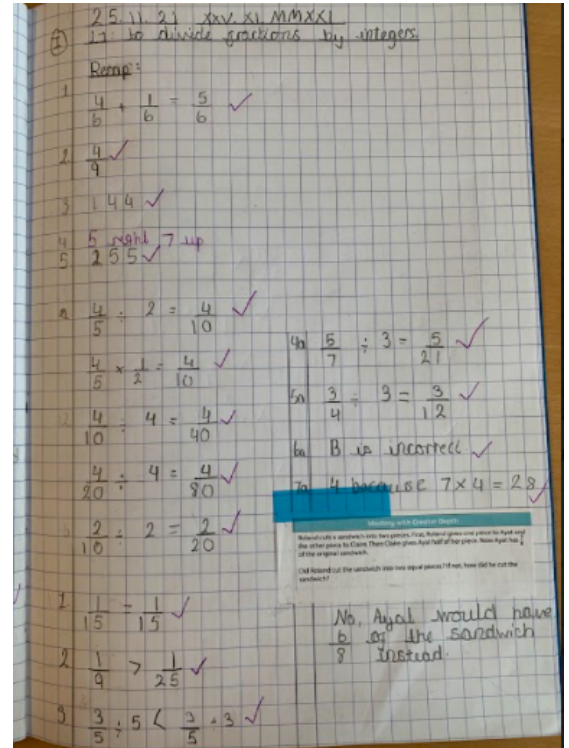 25.11.21 XXV.XI.MMXXI
I
LI: to divide fractions by integers.
Recap:
1 4/6 + 1/6 = 5/6 ✓
2 4/9 ✓
3 144 ✓
4 5 right 7 up
5 255 ✓
4/5 ÷ 2 = 4/10 ✓
4/5 × 1/2 = 4/10 ✓
4/10 ÷ 4 = 4/40 ✓
4/20 ÷ 4 = 4/80 ✓
2/10 ÷ 2 = 2/20 ✓
1 1/15 = 1/15 ✓
2 1/9 > 1/25 ✓
3 3/5 ÷ 5 < 3/5 ÷ 3 ✓
4a 5/7 ÷ 3 = 5/21 ✓
5a 3/4 ÷ 3 = 3/12 ✓
6a B is incorrect ✓
7a 4 because 7 × 4 = 28 ✓
Working with Greater Depth
Roland cuts a sandwich into two pieces. First, Roland gives one piece to Ayat and
the other piece to Claire. Then Claire gives Ayat half of her piece. Now Ayat has
of the original sandwich.
Did Roland cut the sandwich into two equal pieces? If not, how did he cut the
sandwich?
No, Ayat would have
6/8 of the sandwich
instead.